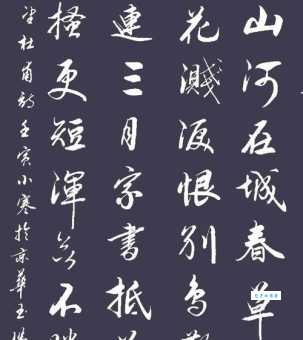 山河在城春草
花濺淚恨別鳥
連三月家書抵
搔更短渾欲不
杜甫詩壬寅小寒於京華玉